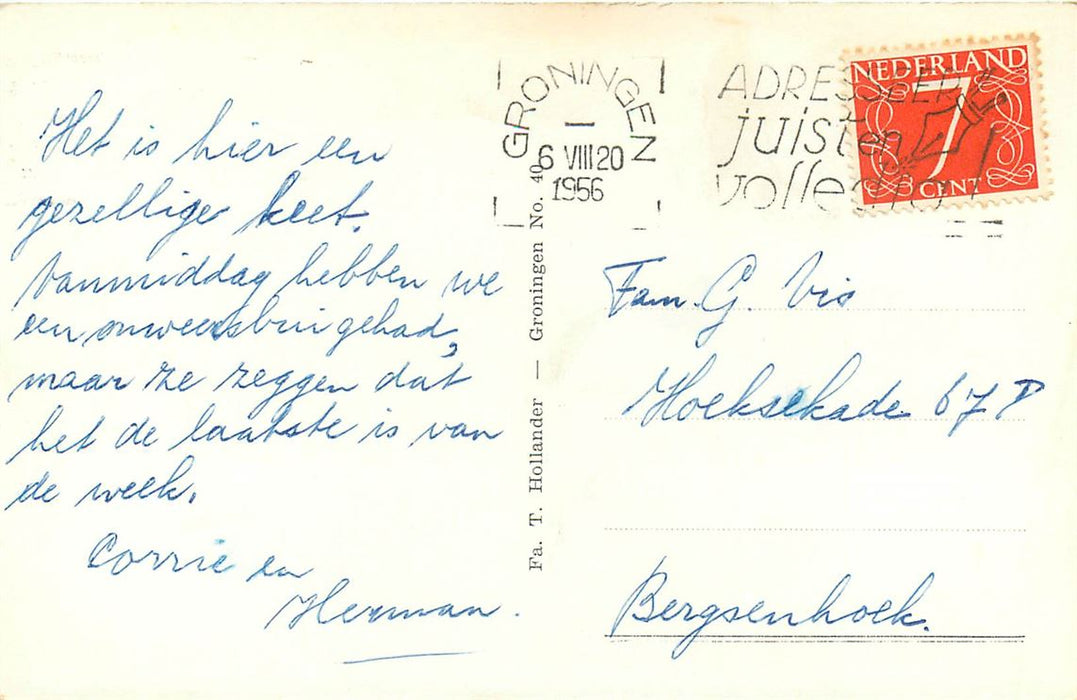 Het is hier een
gezellige keet.
Vanmiddag hebben we
een onweersbui gehad,
maar ze zeggen dat
het de laatste is van
de week.
Corrie en
Herman.
Fa. T. Hollander — Groningen No. 40
GRONINGEN
6 VIII 20
1956
ADRESSEER
juist en
volledig
NEDERLAND
7
CENT
Fam. G. Vis
Hoeksekade 67 P
Bergsenhoek.